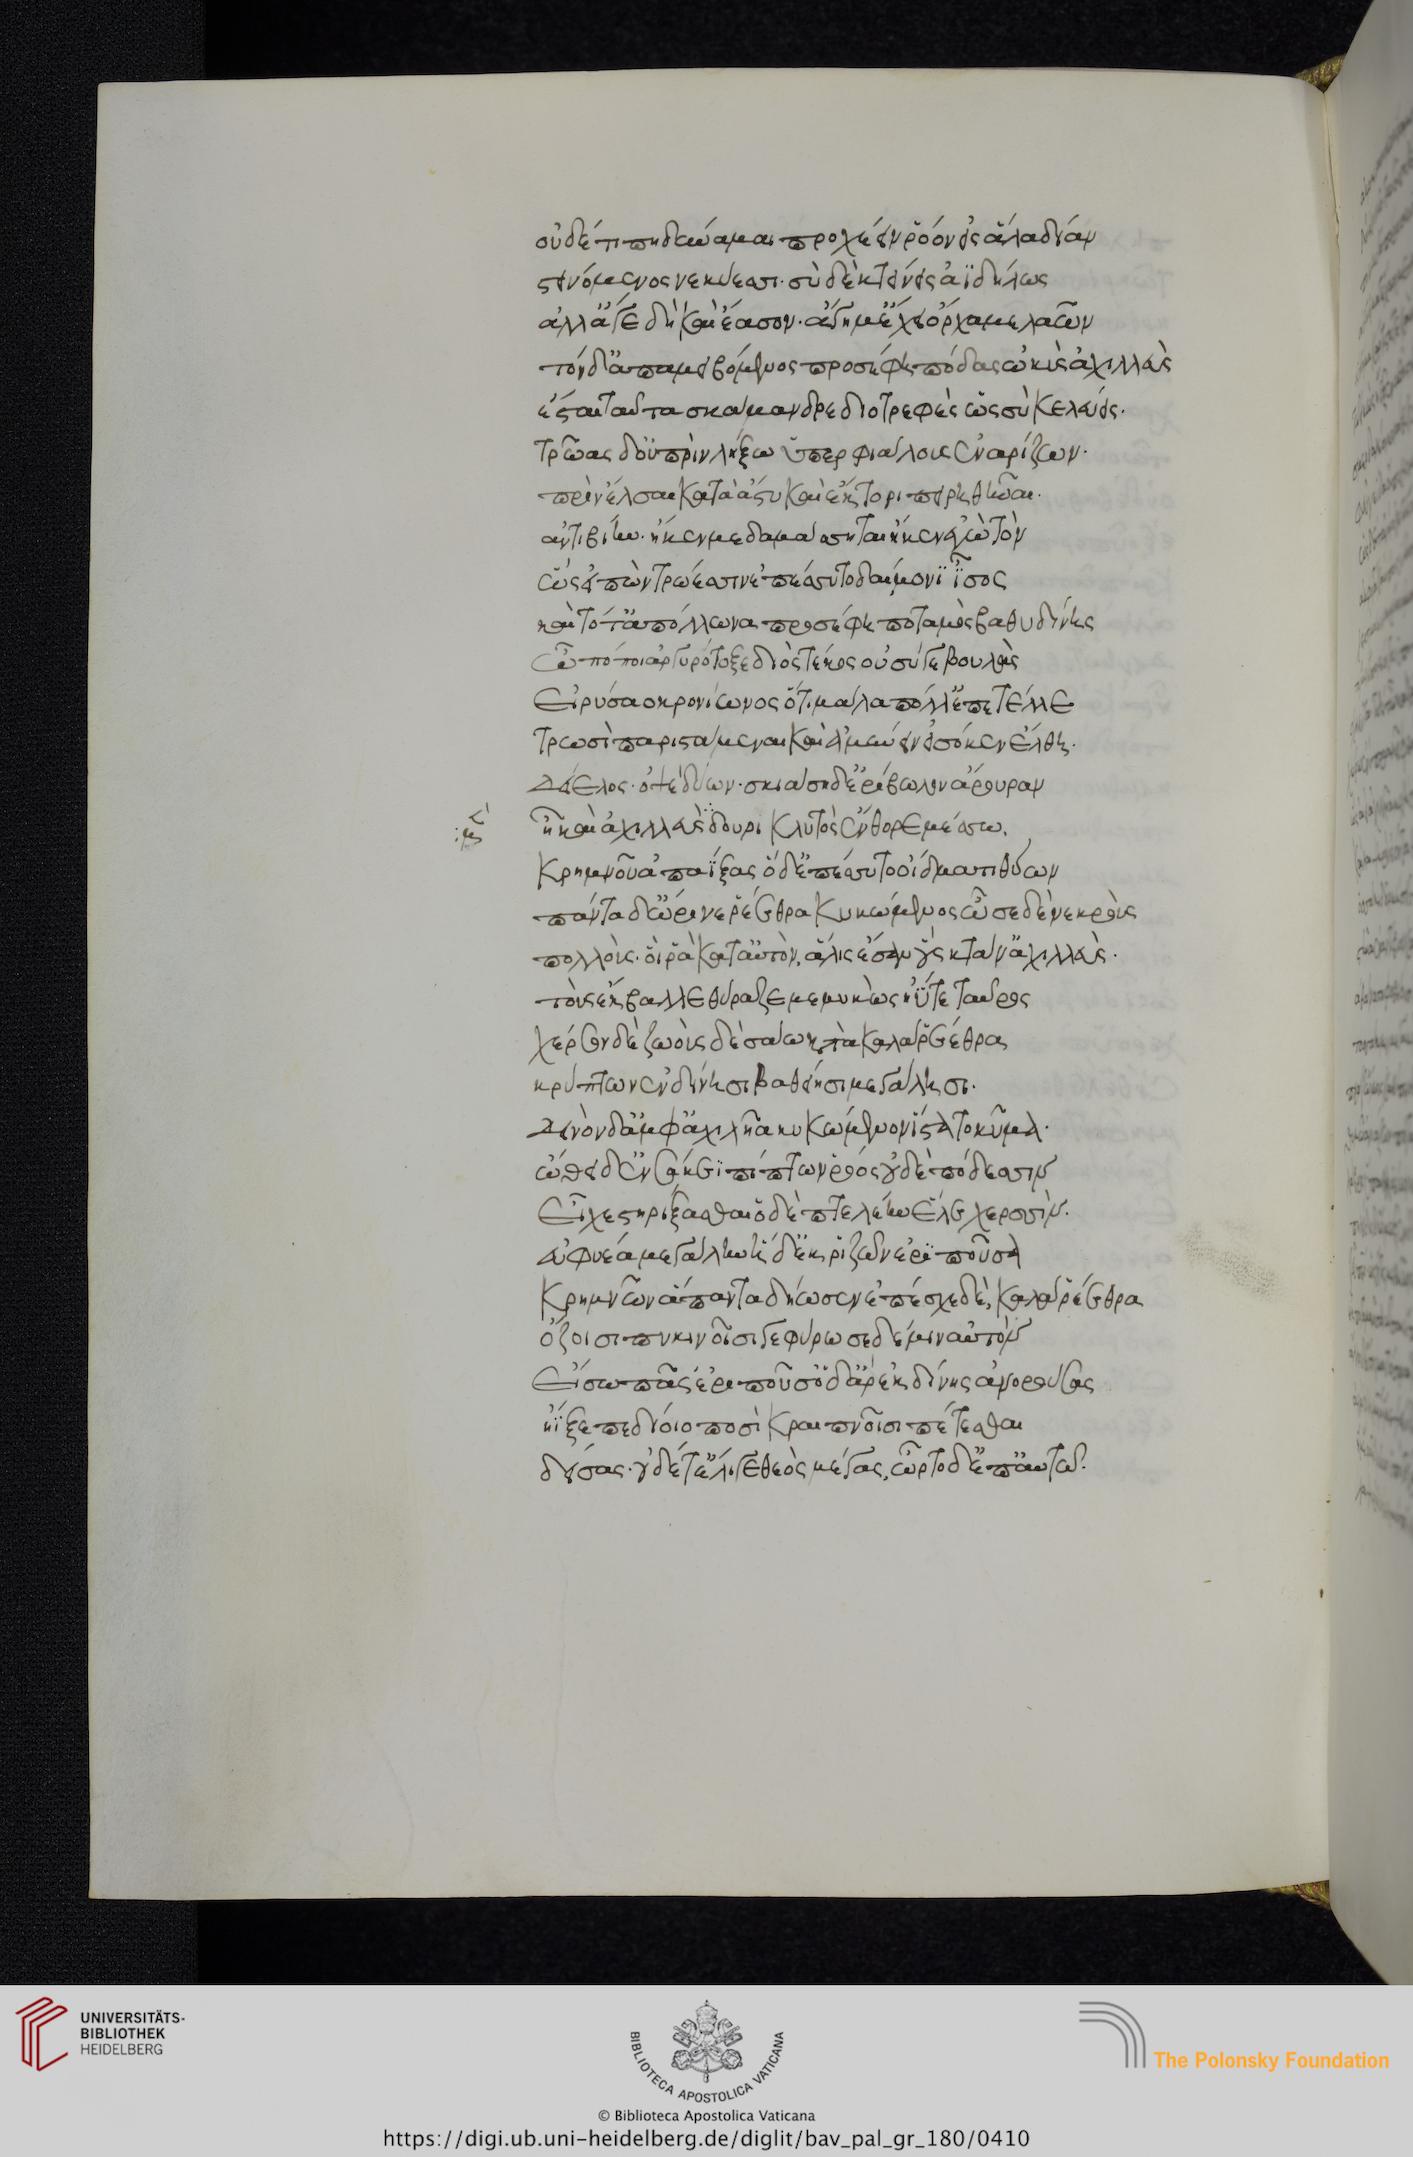 οὐδέ τί πῃ δύναμαι προχέειν ῥόον εἰς ἅλα δῖαν
στεινόμενος νεκύεσσι· σὺ δὲ κτείνεις ἀϊδήλως
ἀλλ' ἄγε δὴ καὶ ἔασον· ἄγη μ' ἔχει ὄρχαμε λαῶν
τὸν δ' ἀπαμειβόμενος προσέφη πόδας ὠκὺς ἀχιλλεὺς
ἔσται ταῦτα σκάμανδρε διοτρεφὲς ὡς σὺ κελεύεις·
τρῶας δ' οὐ πρὶν λήξω ὑπερφιάλους ἐναρίζων·
πρὶν ἔλσαι κατὰ ἄστυ καὶ ἕκτορι πειρηθῆναι·
ἀντιβίην· ἤ κέν με δαμάσσεται ἤ κεν ἐγὼ τὸν
ὣς εἰπὼν τρώεσσιν ἐπέσσυτο δαίμονϊ ἶσος
καὶ τότ' ἀπόλλωνα προσέφη ποταμὸς βαθυδίνης
ὦ πόποι ἀργυρότοξε διὸς τέκος οὐ σύ γε βουλὰς
εἰρύσαο κρονίωνος ὅ τοι μάλα πόλλ' ἐπέτελλε
τρωσὶ παριστάμεναι καὶ ἀμύνειν εἰσόκεν ἔλθῃ·
δείελος· ὀψὲ δύων· σκιάσῃ δ' ἐρίβωλον ἄρουραν
ἦ καὶ ἀχιλλεὺς δουρικλυτὸς ἔνθορε μέσσω.
κρημνοῦ ἀπαΐξας ὁ δ' ἐπέσσυτο οἴδματι θύων
πάντα δ' ὤρινε ῥέεθρα κυκώμενος ὦσε δὲ νεκροὺς
πολλοὺς· οἵ ῥα κατ' αὐτὸν, ἅλις ἔσαν οὓς κτάν' ἀχιλλεὺς·
τοὺς ἔκβαλλε θύραζε μεμυκὼς ἠΰτε ταῦρος
χέρσον δὲ ζωοὺς δὲ σάω κατὰ καλὰ ῥέεθρα
κρύπτων ἐν δίνῃσι βαθείῃσι μεγάλῃσι·
δεινὸν δ' ἀμφ' ἀχιλῆα κυκώμενον ἵστατο κῦμα·
ὤθει δ' ἐν σάκεϊ πίπτων ῥόος οὐδὲ πόδεσσιν
εἶχε στηρίξασθαι ὁ δὲ πτελέην ἕλε χερσὶν·
εὐφυέα μεγάλην ἡ δ' ἐκ ῥιζῶν ἐριποῦσα
κρημνὸν ἅπαντα διῶσεν ἐπέσχε δὲ, καλὰ ῥέεθρα
ὄζοισι πυκινοῖσι γεφύρωσε δέ μιν αὐτὸν
εἴσω πᾶσ' ἐριποῦσ' ὁ δ' ἄρ' ἐκ δίνης ἀνορούσας
ἤϊξε πεδίοιο ποσὶ κραιπνοῖσι πέτεσθαι
δείσας· οὐδέ τ' ἔληγε θεὸς μέγας, ὦρτο δ' ἐπ' αὐτῶ·
UNIVERSITÄTS-
BIBLIOTHEK
HEIDELBERG
BIBLIOTECA APOSTOLICA VATICANA
The Polonsky Foundation
© Biblioteca Apostolica Vaticana
https://digi.ub.uni-heidelberg.de/diglit/bav_pal_gr_180/0410